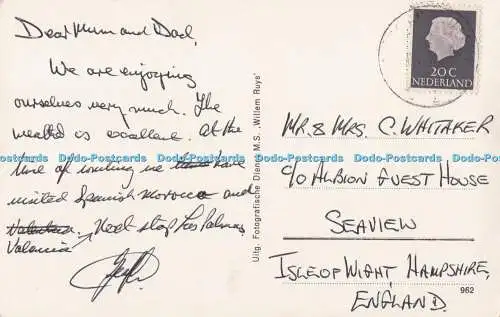 Dear Mum and Dad,
We are enjoying
ourselves very much. The
weather is excellent. At the
time of writing we have
visited Spanish Morocco and
Valencia Next stop Las Palmas
Uitg. Fotografische Dienst M.S. „Willem Ruys"
20 C
NEDERLAND
MR & MRS. C. WHITAKER
C/O ALBION GUEST HOUSE
SEAVIEW
ISLE OF WIGHT, HAMPSHIRE,
ENGLAND.
962
Dodo-Postcards Dodo-Postcards Dodo-Postcards Dodo-Postcards Dodo-Postcards